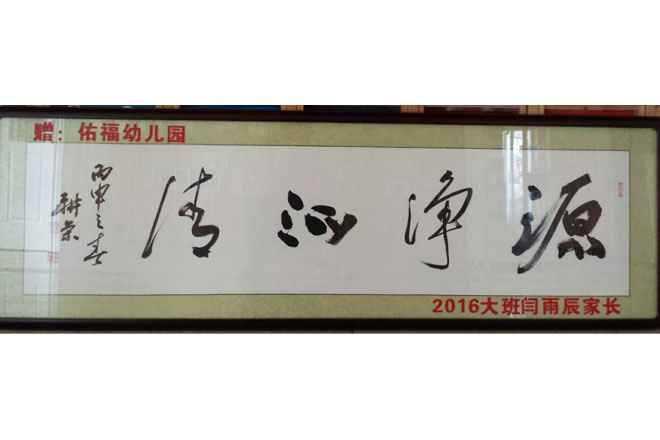 赠：佑福幼儿园
源净沁清
丙申之春
耕荣
2016大班闫雨辰家长